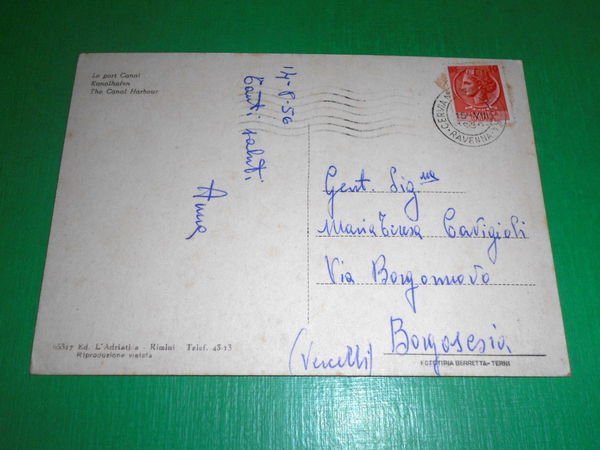 Le port Canal
Kanalhafen
The Canal Harbour
14-8-56
Tanti saluti
Anna
CERVIA
RAVENNA
Gent. Sig.na
Maria Teresa Cavigioli
Via Borgonuovo
Borgosesia
(Vercelli)
Ed. L'Adriatica - Rimini Telef. 45-13
Riproduzione vietata
FOTOTIPIA BERRETTA - TERNI